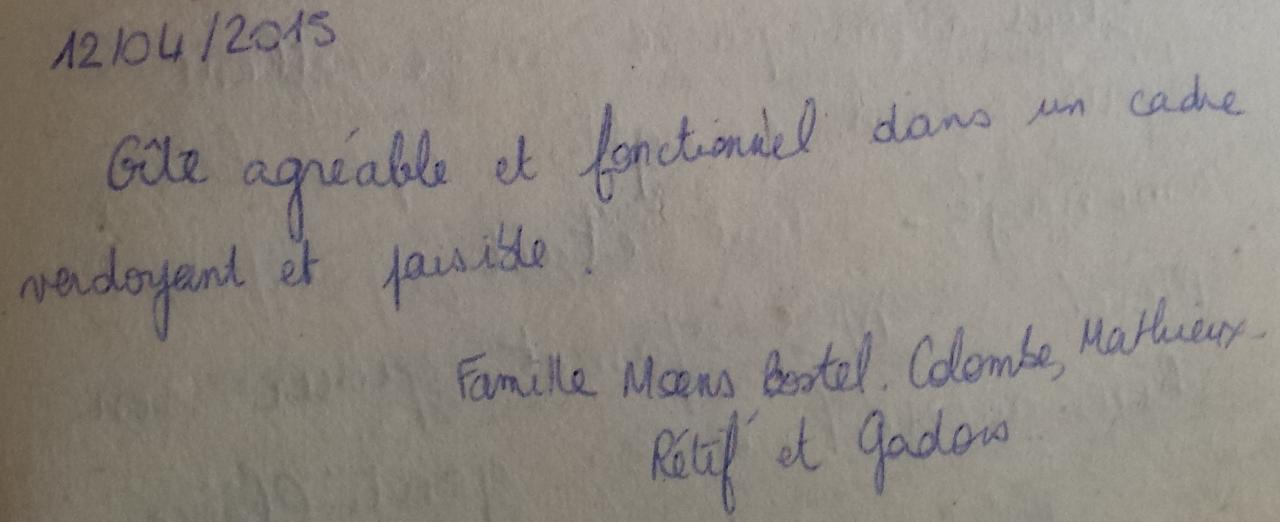 12/04/2015
Gîte agréable et fonctionnel dans un cadre
verdoyant et paisible !
Famille Moens Bostel. Colombe, Mathieux-
Rétif et Gadois